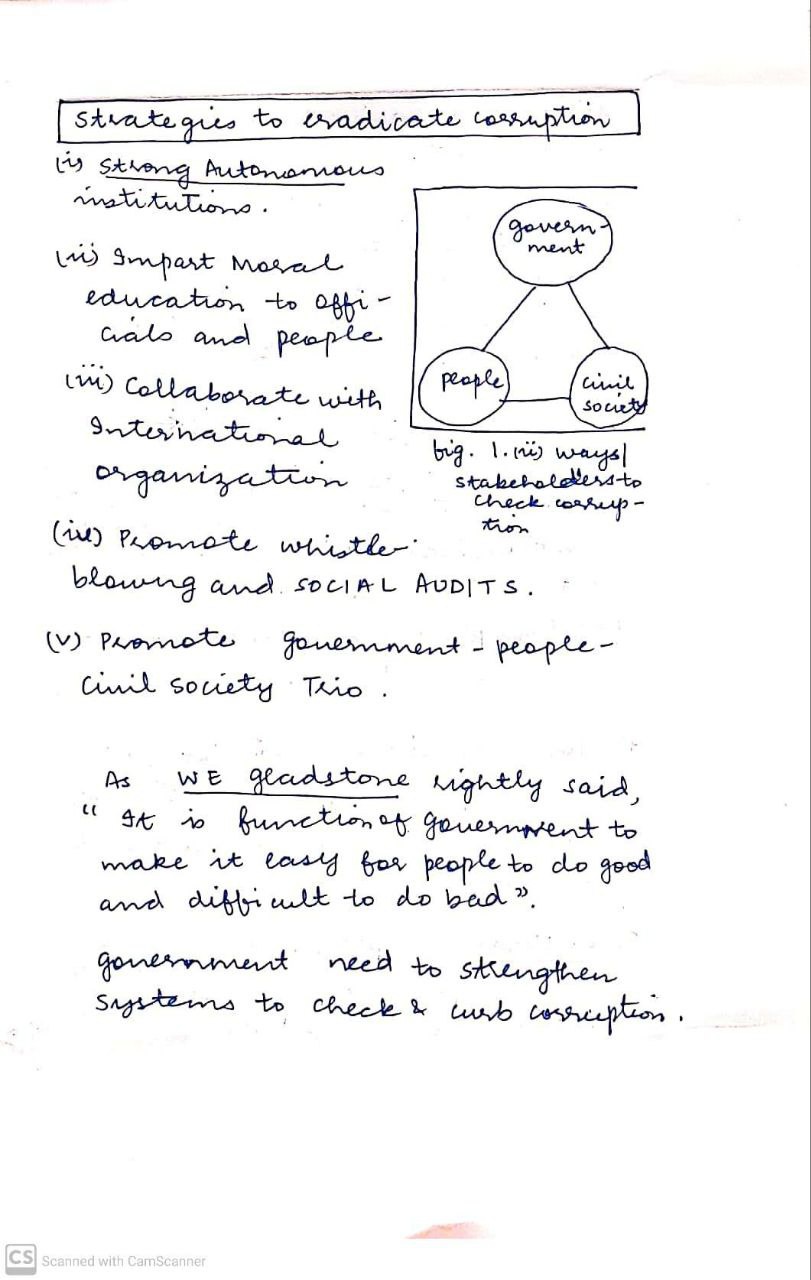 Strategies to eradicate corruption
(i) Strong Autonomous
institutions.
(ii) Impart Moral
education to offi-
cials and people
(iii) Collaborate with
International
organization
govern-
ment
people
civil
society
fig. 1.(ii) ways/
stakeholders to
check corrup-
tion
(iv) Promote whistle
blowing and SOCIAL AUDITS.
(v) Promote government - people -
civil society Trio.
As WE gladstone rightly said,
“ It is function of government to
make it easy for people to do good
and difficult to do bad ”.
government need to strengthen
systems to check & curb corruption.
CS Scanned with CamScanner